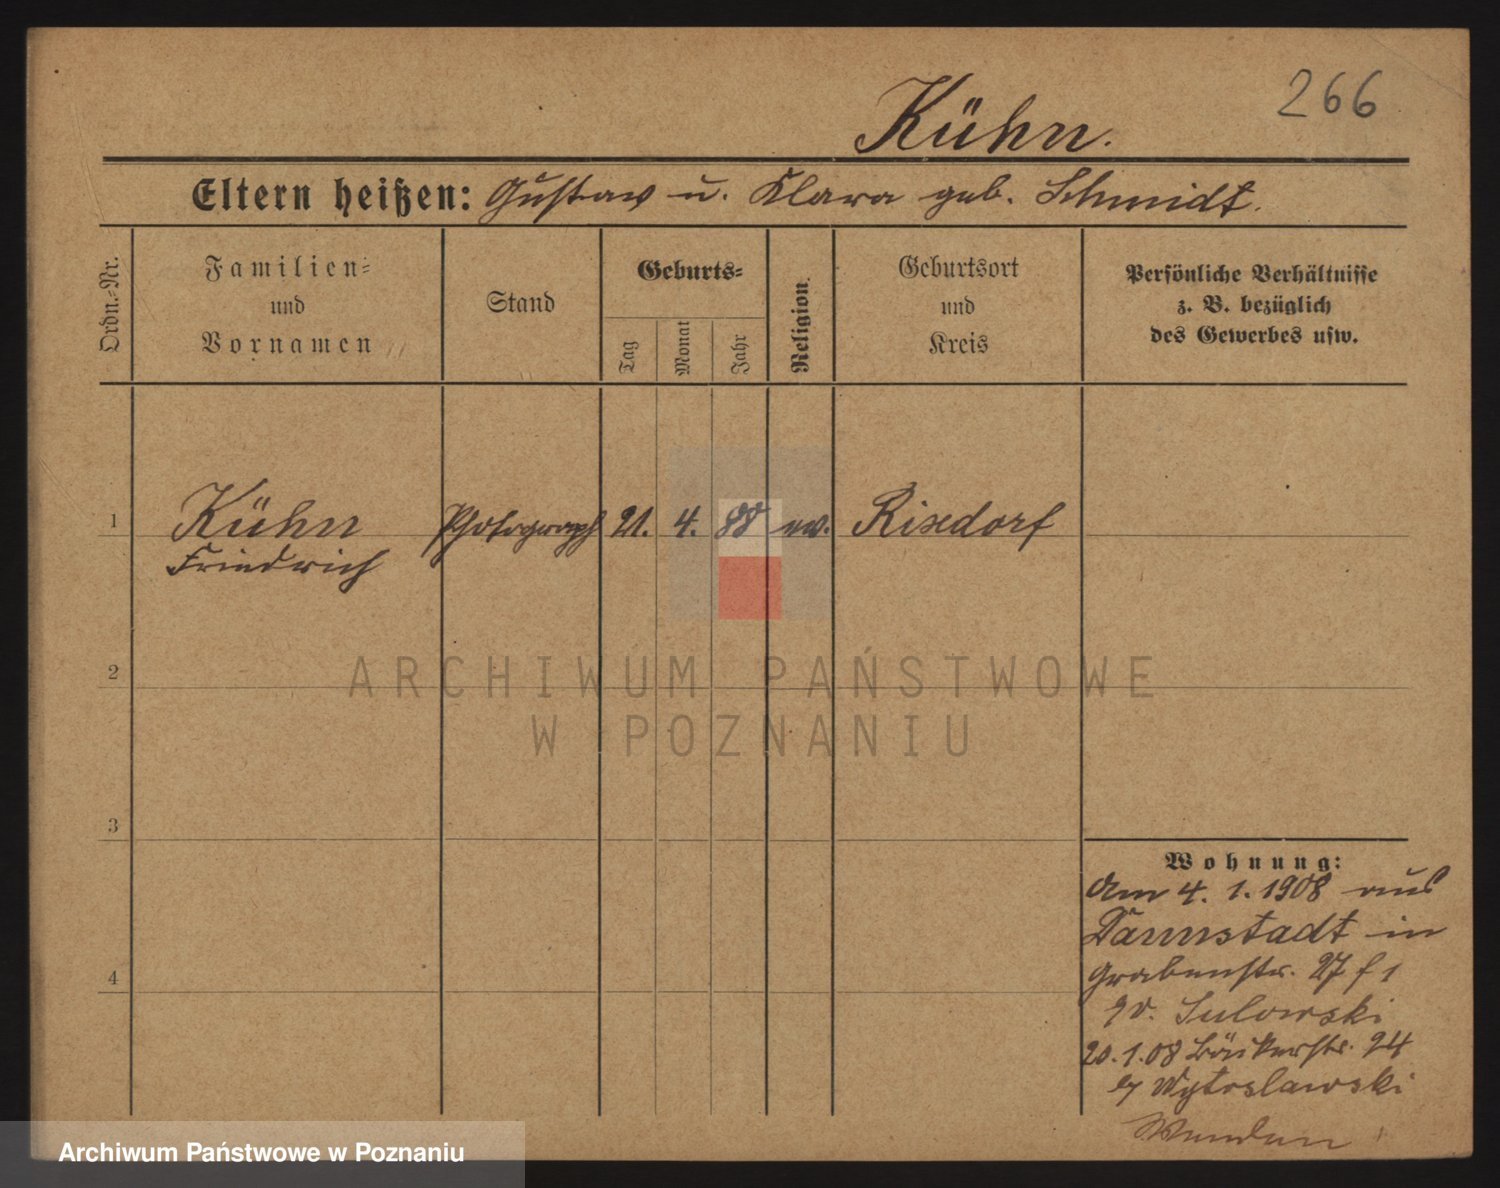 266
Kühn.
Eltern heißen: Gustav u. Klara geb. Schmidt.
Ordn.-Nr.
Familien-
und
Vornamen
Stand
Geburts-
Tag
Monat
Jahr
Religion
Geburtsort
und
Kreis
Persönliche Verhältnisse
z. B. bezüglich
des Gewerbes usw.
1
Kühn
Friedrich
Photograph
21.
4.
88
ev.
Rixdorf
2
3
4
ARCHIWUM PAŃSTWOWE
W POZNANIU
Wohnung:
Am 4. 1. 1908 aus
Darmstadt in
Grabenstr. 27
Sulowski
20.1.08 Bäckerstr. 24
Archiwum Państwowe w Poznaniu